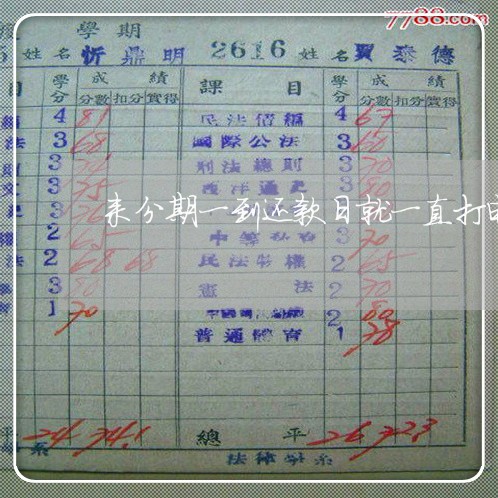 7788.com
學期
姓名 忻鼎明 2616 姓名 賈泰德
目 學分 成績 課目 學分 成績
分數 扣分 實得 分數 扣分 實得
4 81 民法債編 4 67
法 3 68 國際公法 3 60
3 刑法總則 3 70
3 75 西洋通史 3 80
3
來分期一到还款日就一直打电
2 65 3 70
法 2 68 68 民法物權 2 65
3 80 憲法 2 70
1 70 2 80
普通體育 1 78
平 24 74.1 總平 26 72.3
系 法律學系